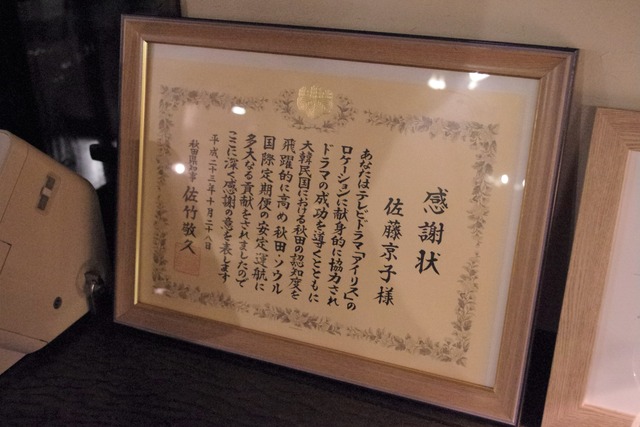 感謝状
佐藤京子様
あなたはテレビドラマ「アイリス」の
ロケーションに献身的に協力され
ドラマの成功を導くとともに
大韓民国における秋田の認知度を
飛躍的に高め秋田・ソウル
国際定期便の安定運航に
多大なる貢献をされましたので
ここに深く感謝の意を表します
平成二十三年十月二十八日
秋田県知事 佐竹敬久